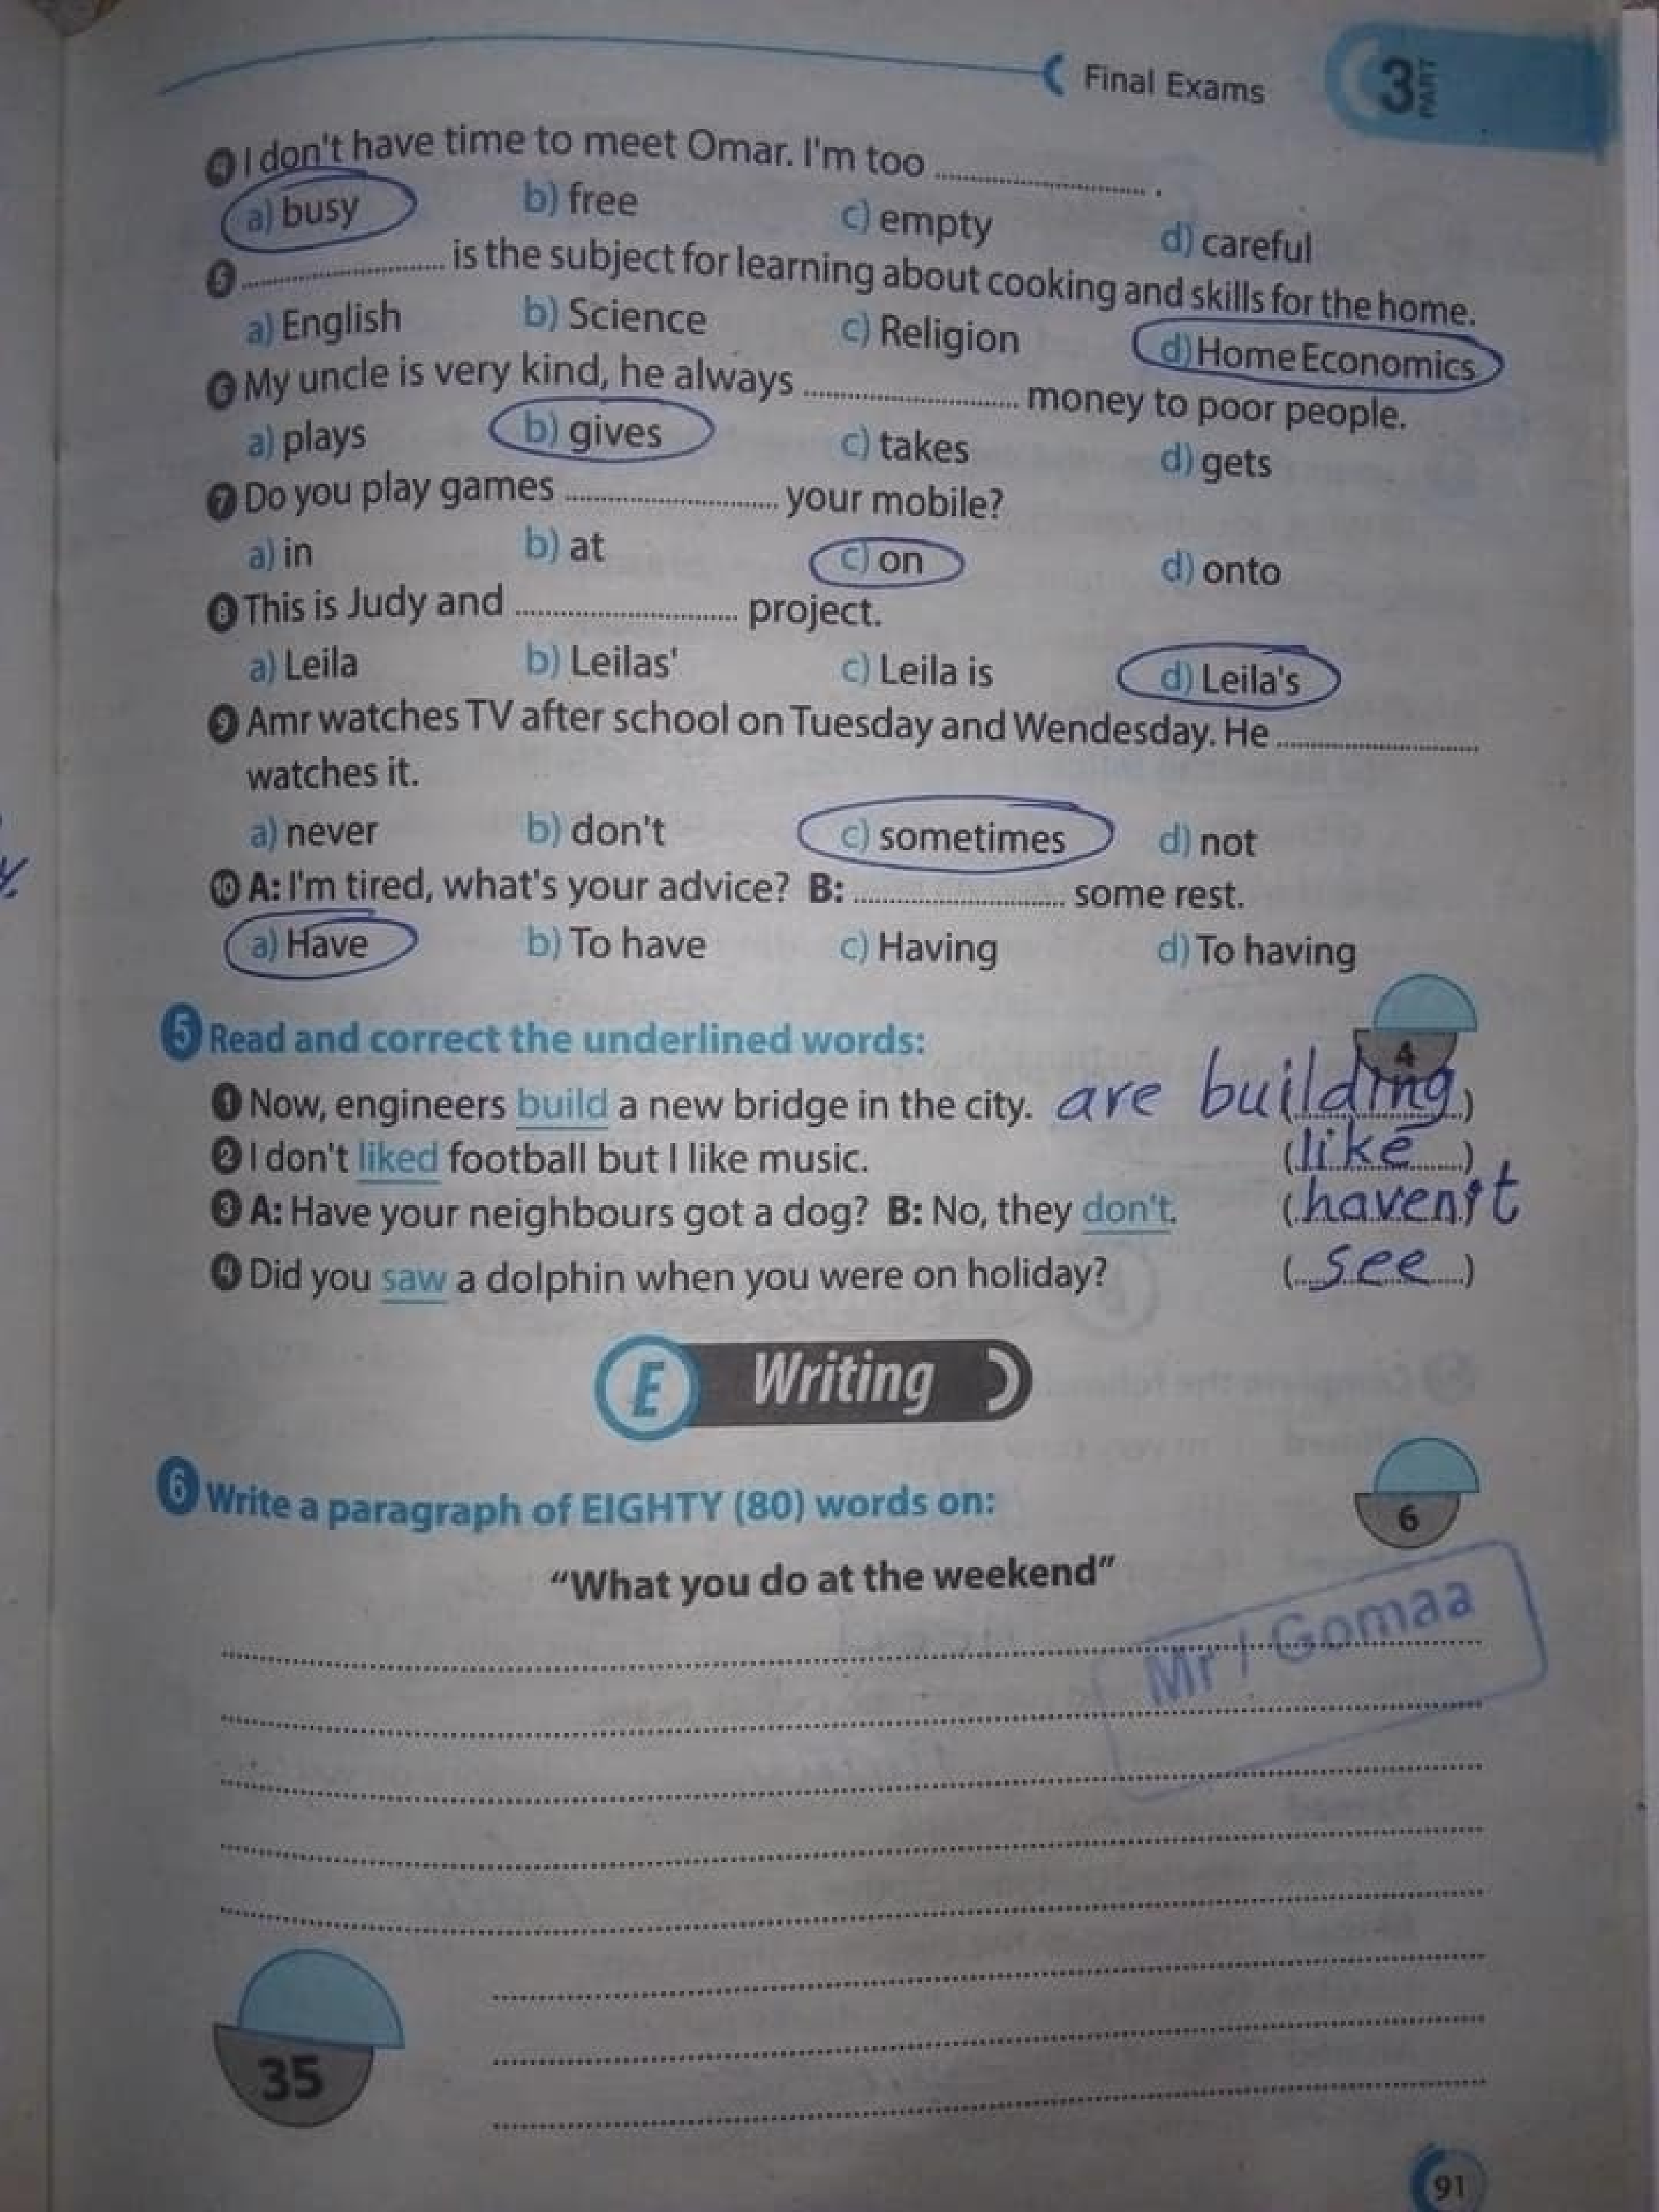 Final Exams
3 PART
4 I don't have time to meet Omar. I'm too ............ .
a) busy b) free c) empty d) careful
5 ............ is the subject for learning about cooking and skills for the home.
a) English b) Science c) Religion d) Home Economics
6 My uncle is very kind, he always ............ money to poor people.
a) plays b) gives c) takes d) gets
7 Do you play games ............ your mobile?
a) in b) at c) on d) onto
8 This is Judy and ............ project.
a) Leila b) Leilas' c) Leila is d) Leila's
9 Amr watches TV after school on Tuesday and Wendesday. He ............
watches it.
a) never b) don't c) sometimes d) not
10 A: I'm tired, what's your advice? B: ............ some rest.
a) Have b) To have c) Having d) To having
5 Read and correct the underlined words:
4
1 Now, engineers build a new bridge in the city. are building
2 I don't liked football but I like music. (like)
3 A: Have your neighbours got a dog? B: No, they don't. (haven't)
4 Did you saw a dolphin when you were on holiday? (see)
E Writing
6 Write a paragraph of EIGHTY (80) words on:
6
“What you do at the weekend”
Mr / Gomaa
35
91